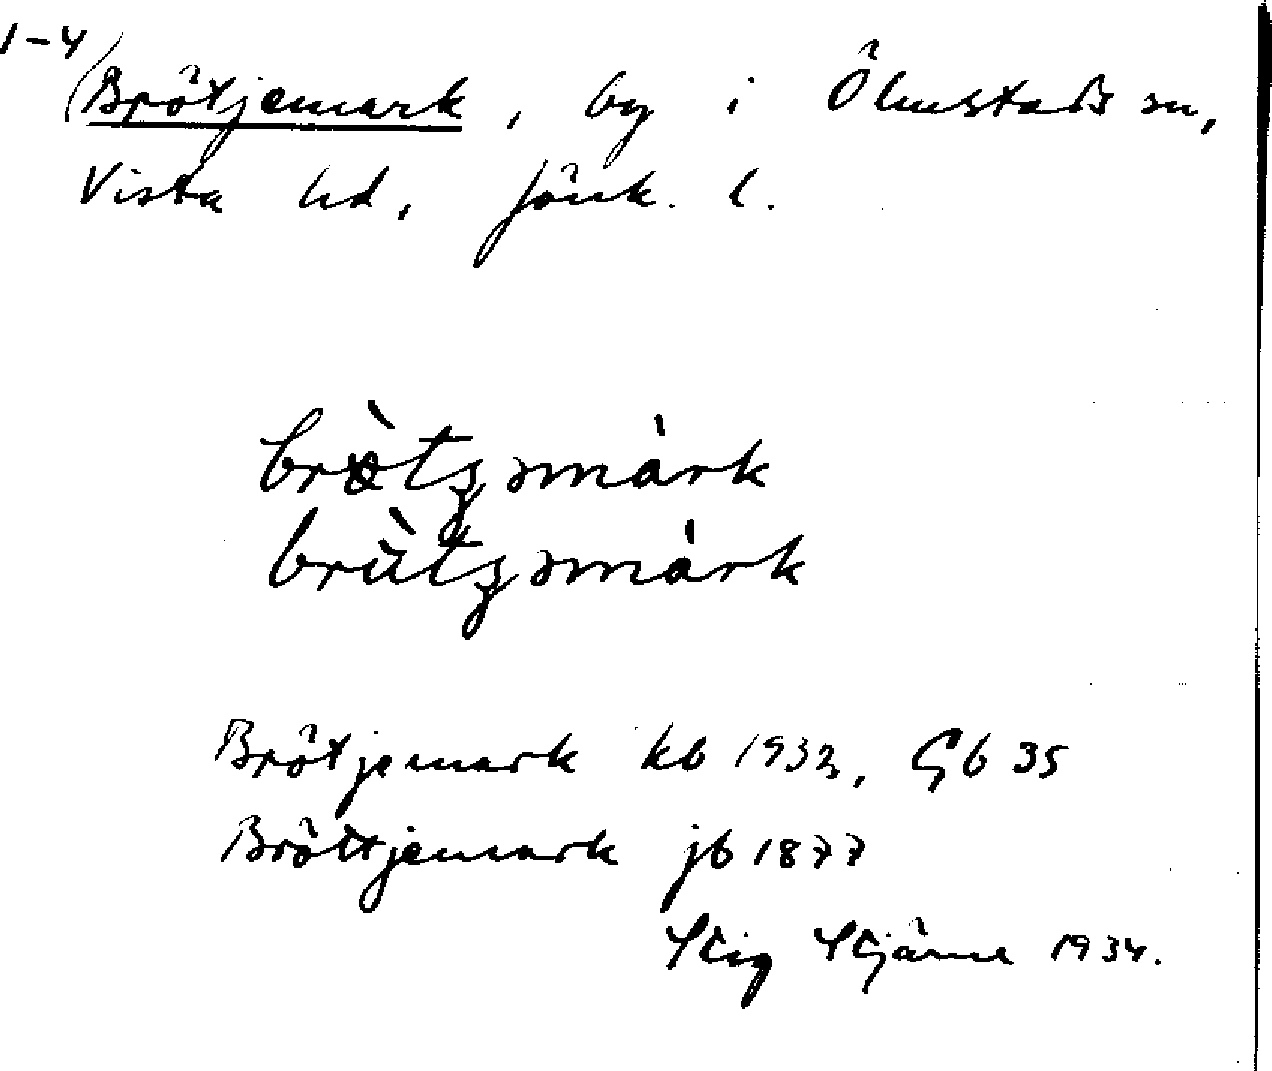 1-4
Brötjemark, by i Ölmstads sn,
Vista hd, Jönk. l.
Brötjemark kb 1932, Gb 35
Bröttjemark jb 1877
Stig Stjärne 1934.